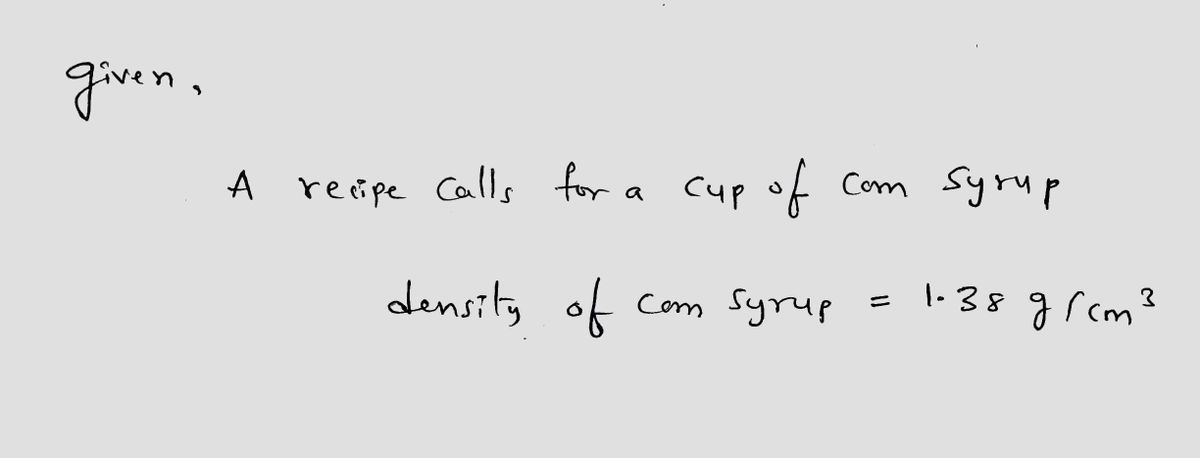 given,
A recipe calls for a cup of corn syrup
density of corn syrup = 1.38 g/cm³